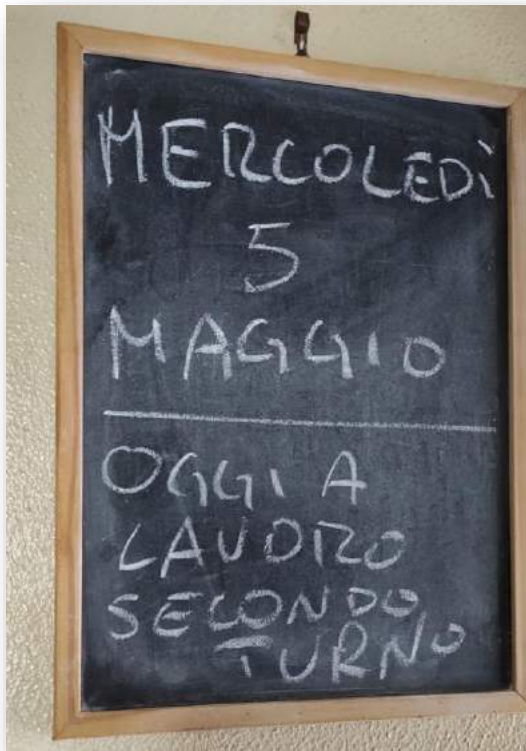 MERCOLEDÌ
5
MAGGIO
OGGI A
LAVORO
SECONDO
TURNO